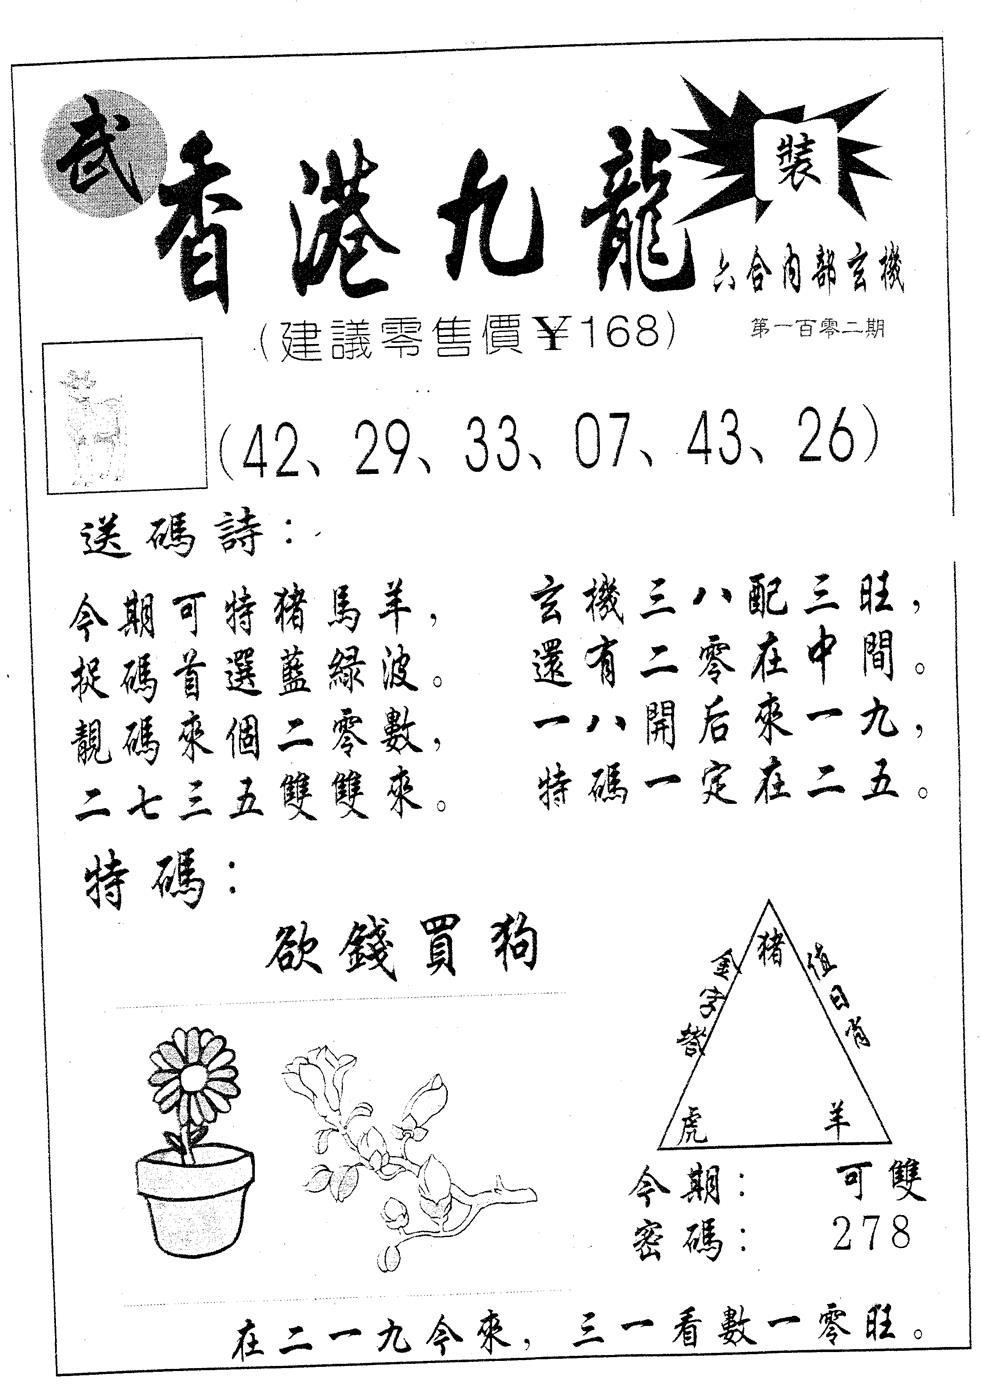 武
香港九龍
裝
六合内部玄機
(建議零售價¥168)
第一百零二期
(42、29、33、07、43、26)
送碼詩：
今期可特猪馬羊，
捉碼首選藍綠波。
靚碼來個二零數，
二七三五雙雙來。
玄機三八配三旺，
還有二零在中間。
一八開后來一九，
特碼一定在二五。
特碼：
欲錢買狗
金字
值日肖
猪
虎
羊
今期： 可雙
密碼： 278
在二一九今來，三一看數一零旺。